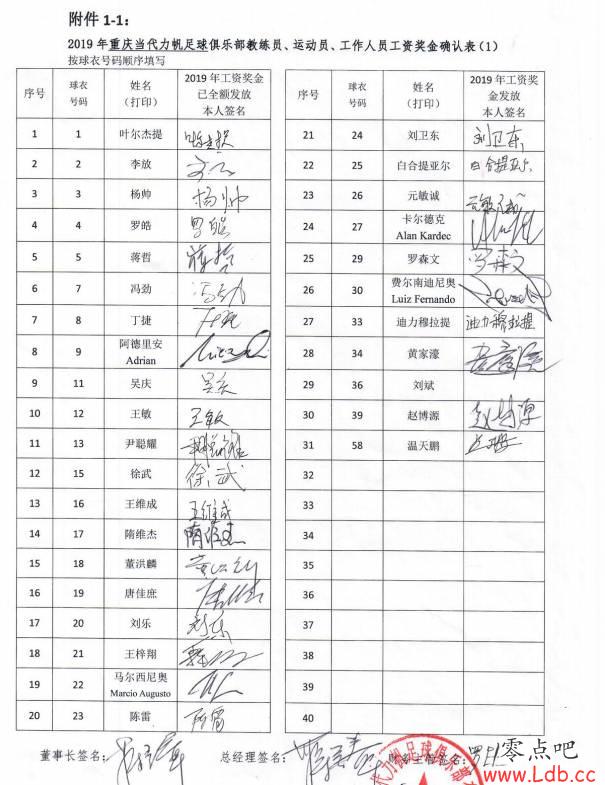 附件 1-1：
2019 年重庆当代力帆足球俱乐部教练员、运动员、工作人员工资奖金确认表（1）
按球衣号码顺序填写
序号 球衣号码 姓名（打印） 2019 年工资奖金已全额发放本人签名
1 1 叶尔杰提
2 2 李放
3 3 杨帅 杨帅
4 4 罗皓 罗皓
5 5 蒋哲 蒋哲
6 7 冯劲 冯劲
7 8 丁捷
8 9 阿德里安 Adrian
9 11 吴庆 吴庆
10 12 王敏 王敏
11 13 尹聪耀
12 15 徐武 徐武
13 16 王维成 王维成
14 17 隋维杰 隋维杰
15 18 董洪麟
16 19 唐佳庶
17 20 刘乐 刘乐
18 21 王梓翔
19 22 马尔西尼奥 Marcio Augusto
20 23 陈雷 陈雷
序号 球衣号码 姓名（打印） 2019 年工资奖金发放本人签名
21 24 刘卫东 刘卫东
22 25 白合提亚尔 白合提亚尔
23 26 元敏诚 元敏诚
24 27 卡尔德克 Alan Kardec
25 29 罗森文 罗森文
26 30 费尔南迪尼奥 Luiz Fernando
27 33 迪力穆拉提 迪力穆拉提
28 34 黄家濠
29 36 刘斌
30 39 赵博源 赵博源
31 58 温天鹏
32
33
34
35
36
37
38
39
40
董事长签名： 总经理签名：
代力帆足球俱乐部
零点吧
www.Ldb.cc